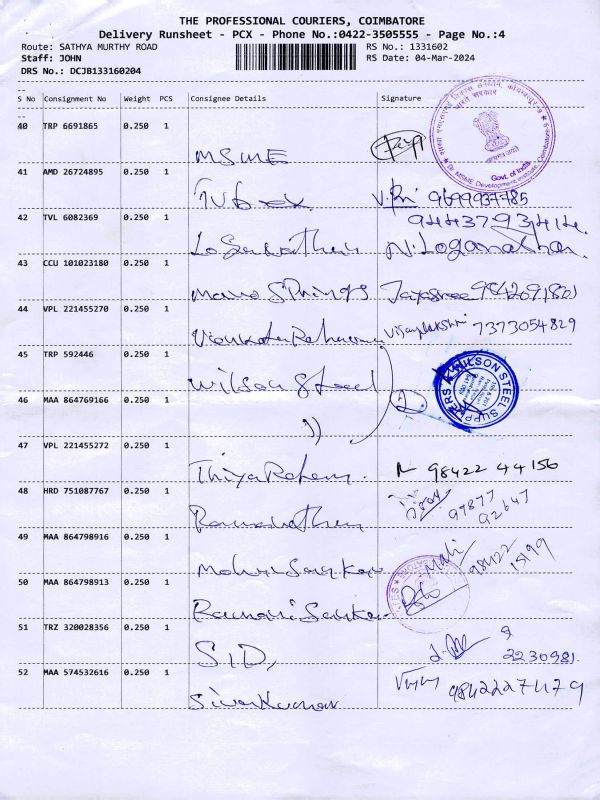 THE PROFESSIONAL COURIERS, COIMBATORE
Delivery Runsheet - PCX - Phone No.:0422-3505555 - Page No.:4
Route: SATHYA MURTHY ROAD
RS No.: 1331602
Staff: JOHN
RS Date: 04-Mar-2024
DRS No.: DCJB133160204
S No Consignment No Weight PCS Consignee Details Signature
40 TRP 6691865 0.250 1
MSME
Govt. of India
Br. MSME Development Institute, Coimbatore
41 AMD 26724895 0.250 1
42 TVL 6082369 0.250 1
Loganathan N. Loganathan
43 CCU 101023180 0.250 1
Mano Springs Jayasree 9842091801
44 VPL 221455270 0.250 1
Vijayalakshmi 7373054829
45 TRP 592446 0.250 1
Wilson Steel
WILSON STEEL SUPPLIERS
46 MAA 864769166 0.250 1
47 VPL 221455272 0.250 1
98422 44156
48 HRD 751087767 0.250 1
97877 92647
49 MAA 864798916 0.250 1
Mohri Sankar
50 MAA 864798913 0.250 1
Ramani Sankar
51 TRZ 320028356 0.250 1
SID,
2230981.
52 MAA 574532616 0.250 1
9842227479
Sivakumar